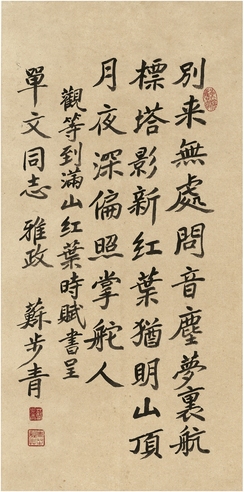 別来無處問音塵夢裏航
標塔影新紅葉猶明山頂
月夜深偏照掌舵人
觀等到滿山紅葉時賦書呈
單文同志雅政 蘇步青